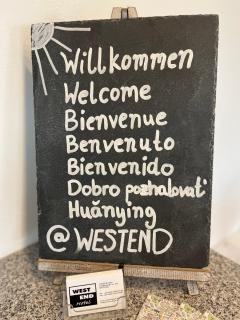 Willkommen
Welcome
Bienvenue
Benvenuto
Bienvenido
Dobro pozhalovat'
Huānying
@ WESTEND
WEST
END